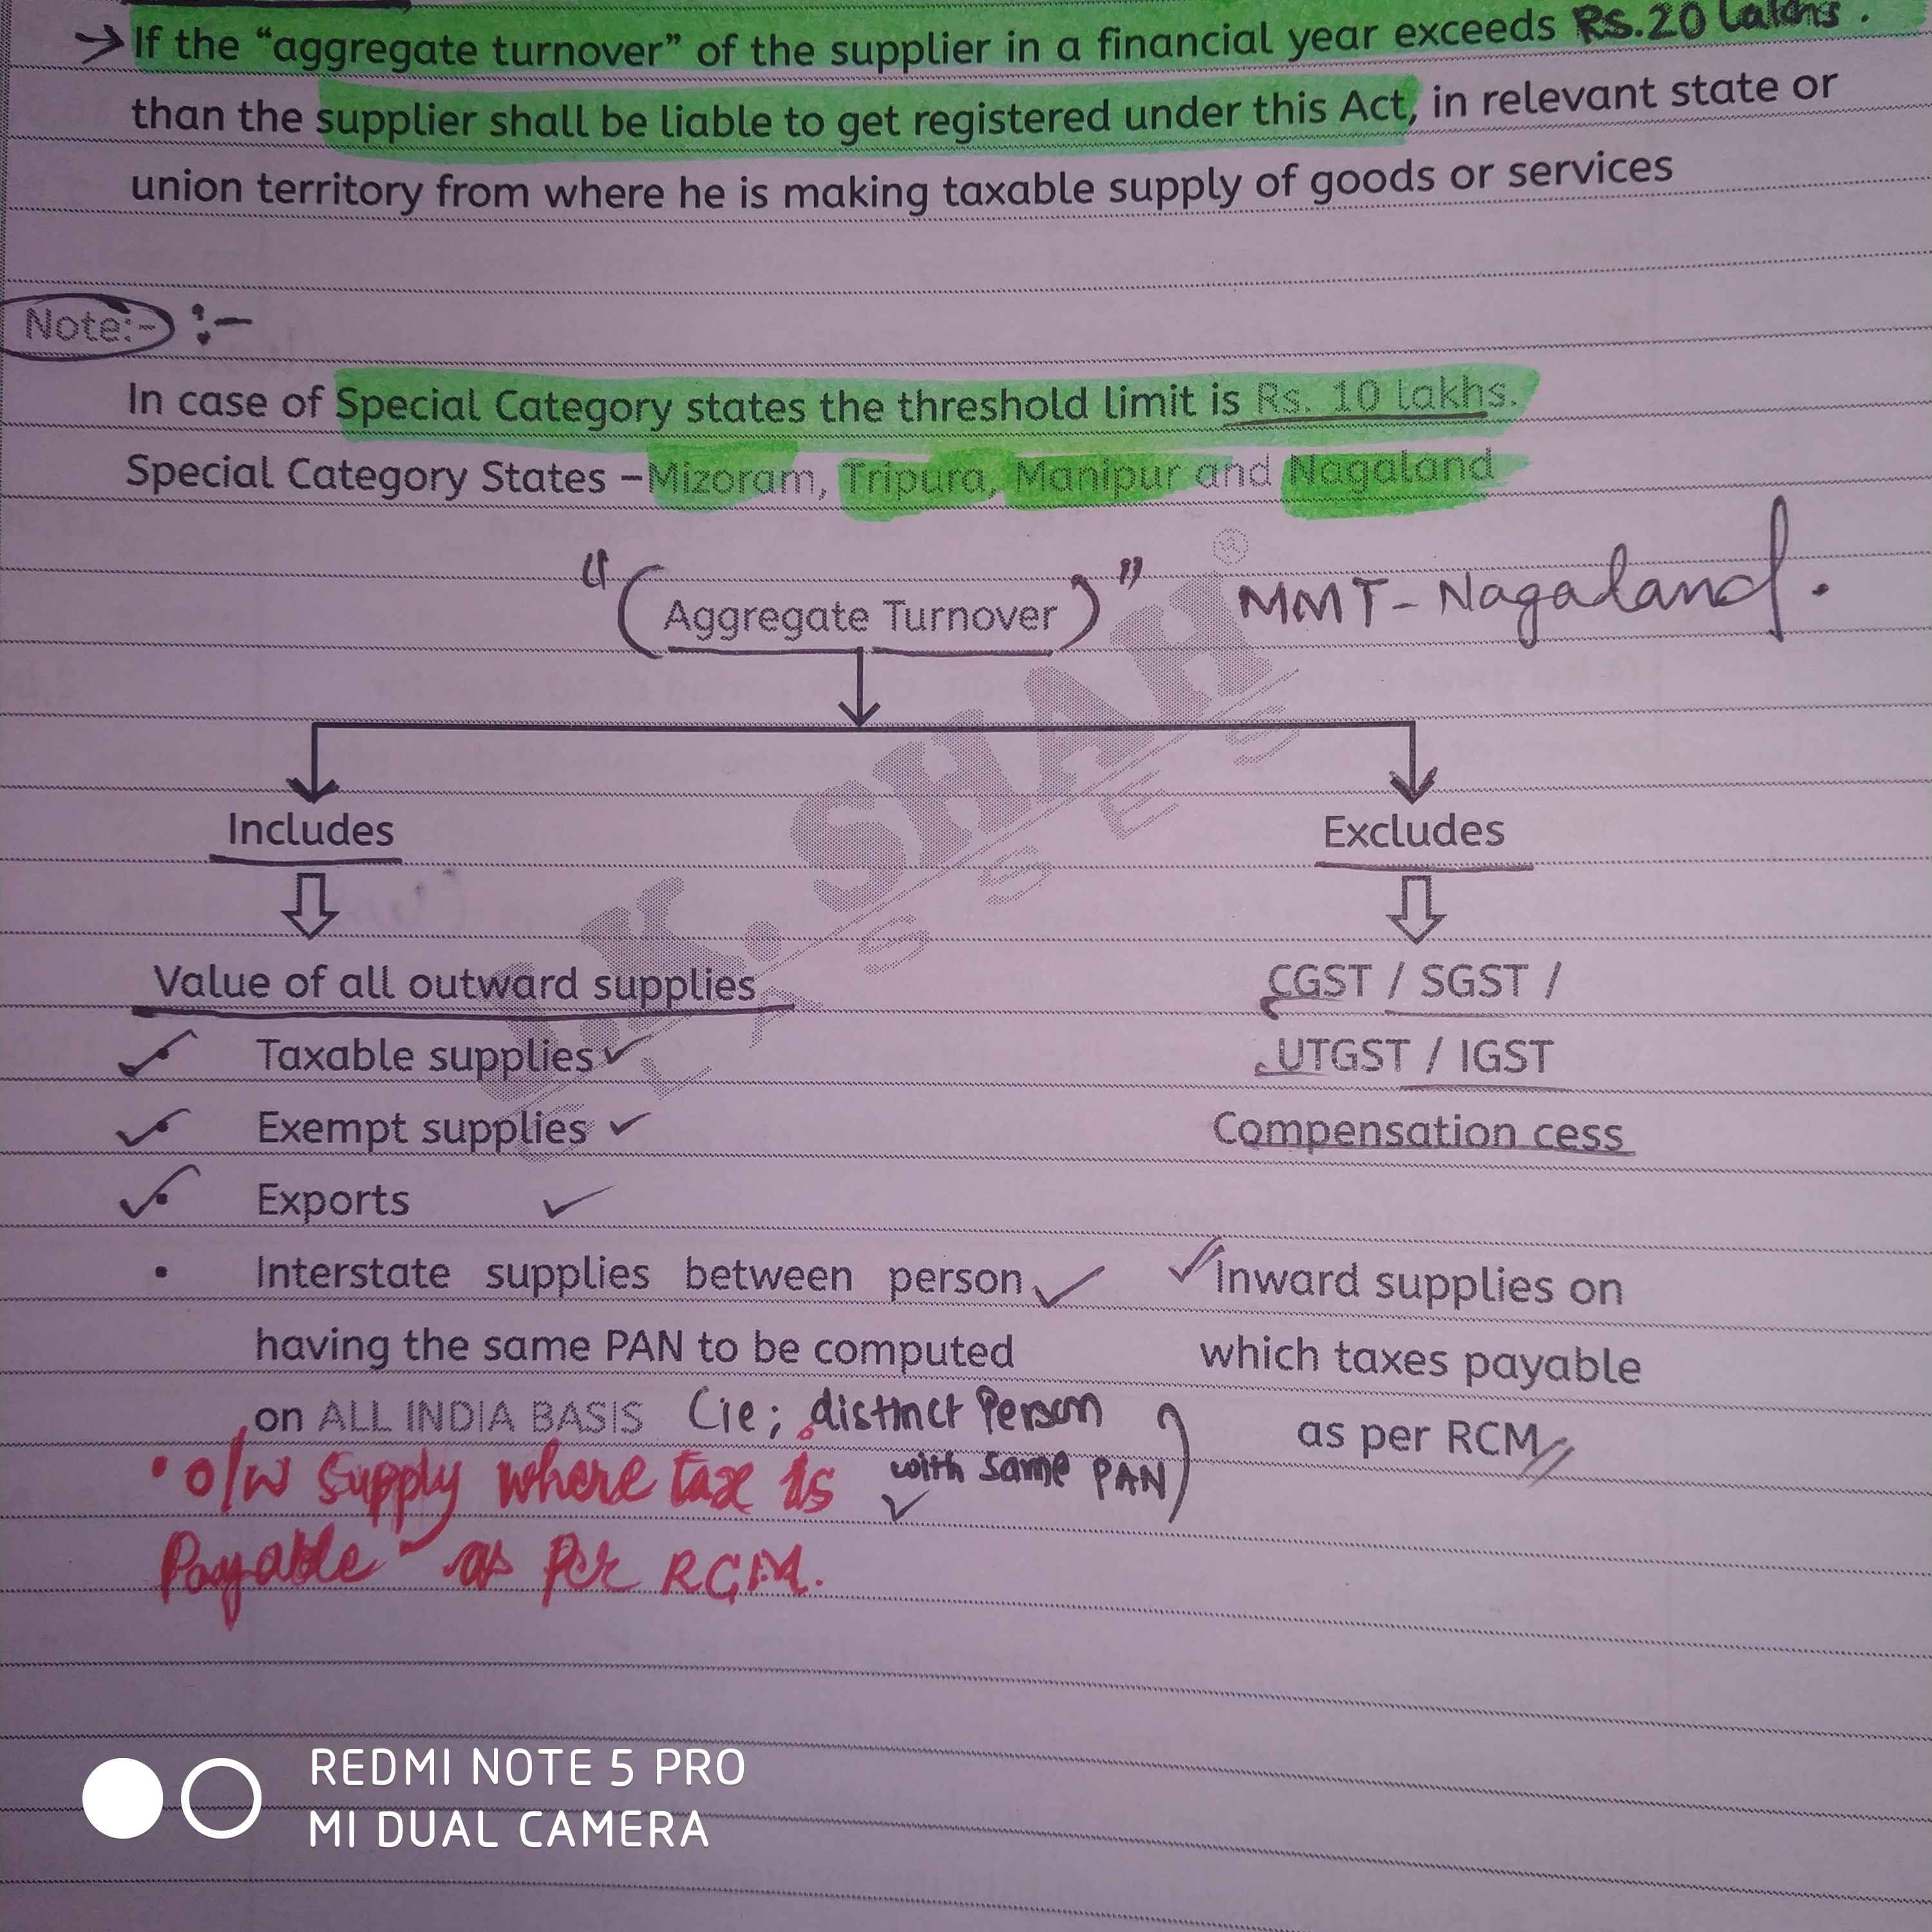 → If the “aggregate turnover” of the supplier in a financial year exceeds Rs.20 Lakhs.
than the supplier shall be liable to get registered under this Act, in relevant state or
union territory from where he is making taxable supply of goods or services
Note:- :-
In case of Special Category states the threshold limit is Rs. 10 lakhs.
Special Category States – Mizoram, Tripura, Manipur and Nagaland
“(Aggregate Turnover)” MMT - Nagaland.
Includes
Excludes
Value of all outward supplies
✓ Taxable supplies ✓
✓ Exempt supplies ✓
✓ Exports ✓
• Interstate supplies between person ✓
having the same PAN to be computed
on ALL INDIA BASIS (ie; distinct Person
with same PAN)
• o/w supply where tax is
Payable - as Per RCM.
CGST / SGST /
UTGST / IGST
Compensation cess
✓ Inward supplies on
which taxes payable
as per RCM //
J.K. SHAH®
CLASSES
REDMI NOTE 5 PRO
MI DUAL CAMERA